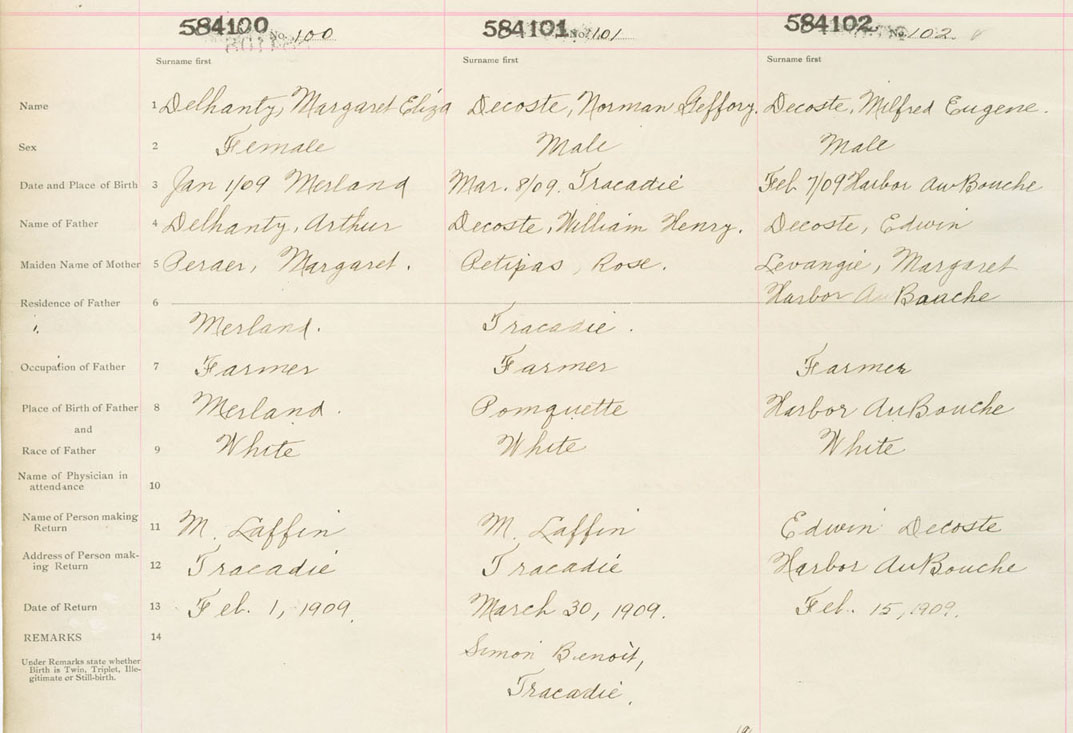 584100 No. 100 584101 No. 101 584102 No. 102
Surname first Surname first Surname first
Name 1 Delhanty, Margaret Eliza Decoste, Norman Geffory. Decoste, Milfred Eugene.
Sex 2 Female Male Male
Date and Place of Birth 3 Jan 1/09 Merland Mar. 8/09. Tracadie Feb. 7/09 Harbor Au Bouche
Name of Father 4 Delhanty, Arthur Decoste, William Henry. Decoste, Edwin
Maiden Name of Mother 5 Margaret. Petipas, Rose. Levangie, Margaret
Residence of Father 6 Harbor A Bouche
Merland. Tracadie.
Occupation of Father 7 Farmer Farmer Farmer
Place of Birth of Father 8 Merland. Pomquette Harbor Au Bouche
and
Race of Father 9 White White White
Name of Physician in
attendance 10
Name of Person making
Return 11 M. Laffin M. Laffin Edwin Decoste
Address of Person mak-
ing Return 12 Tracadie Tracadie Harbor Au Bouche
Date of Return 13 Feb. 1, 1909. March 30, 1909. Feb. 15, 1909.
REMARKS 14
Simon Benoit,
Under Remarks state whether
Birth is Twin, Triplet, Ille-
gitimate or Still-birth.
Tracadie.